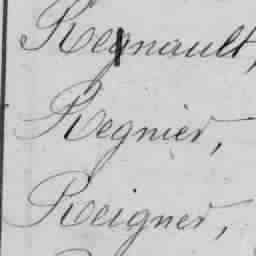 Regnault,
Regnier,
Reigner,